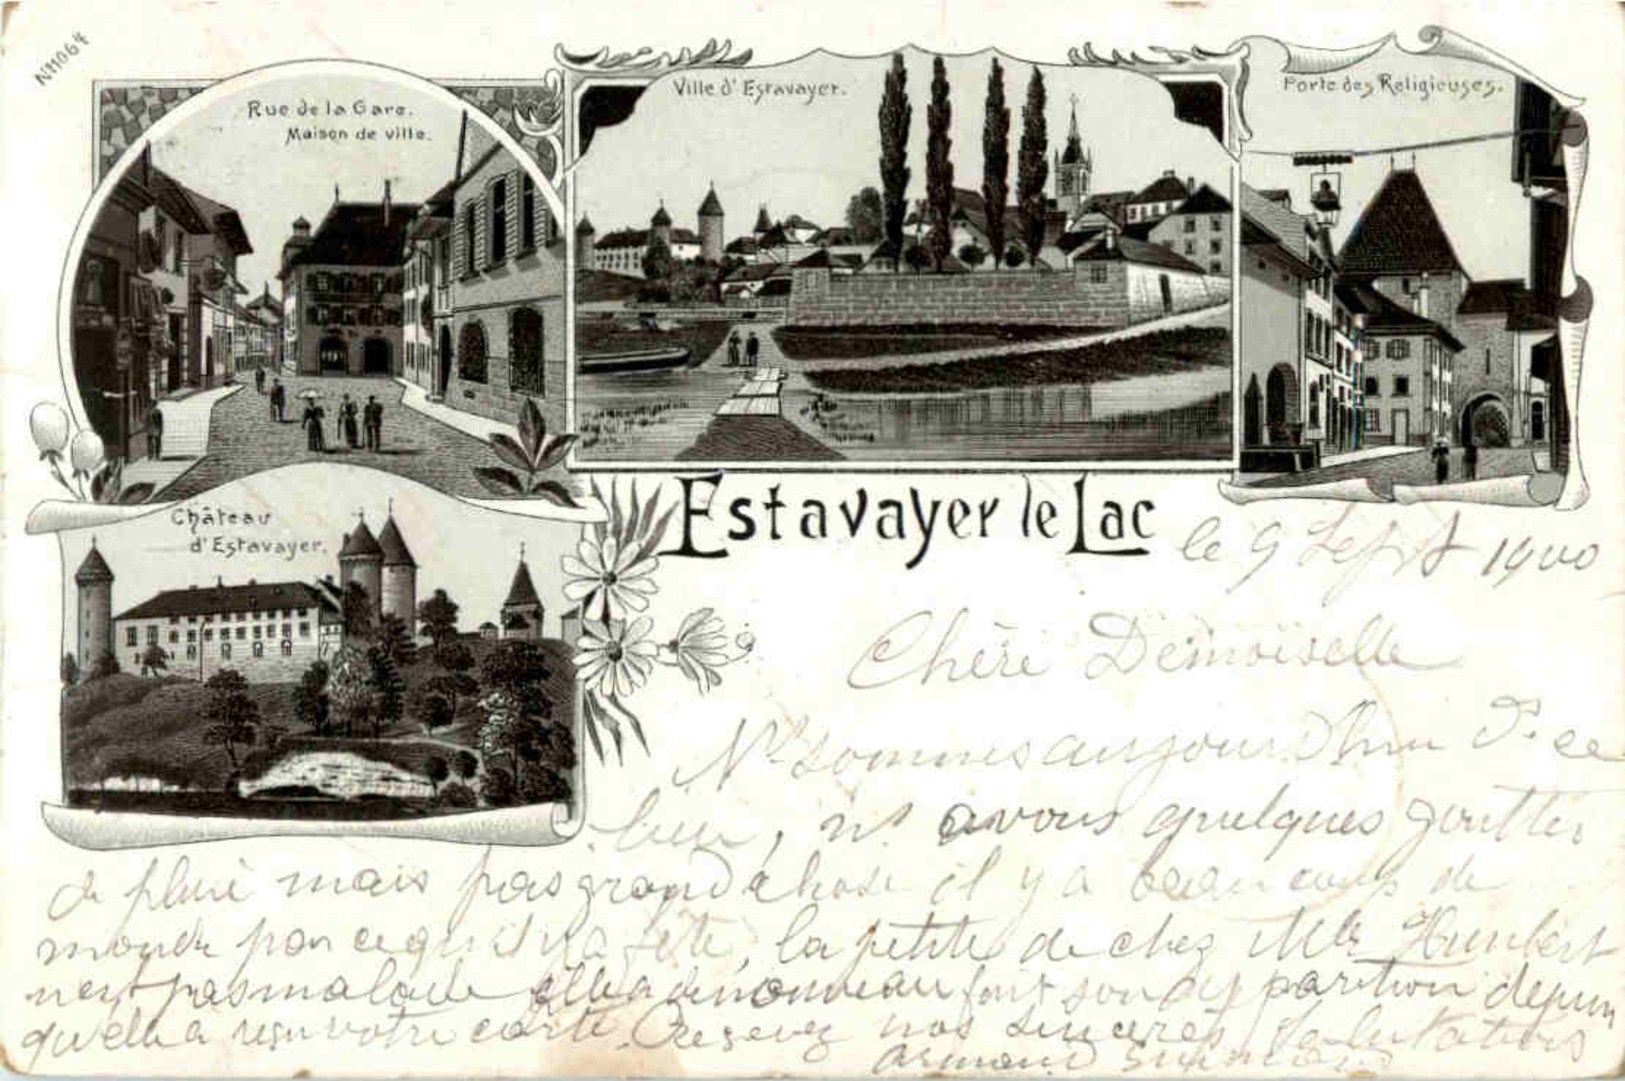 N11064
Rue de la Gare.
Maison de ville.
Ville d'Estavayer.
Porte des Religieuses.
Château
d'Estavayer.
Estavayer le Lac
le 9 Sept 1900
Chère Demoiselle
Ns sommes aujourd'hui ds ce
lieu, ns avons quelques gouttes
de pluie mais pas grand chose il y a beaucoup de
monde parce qu'il y a fête, la petite de chez Mlle Humbert
n'est pas malade elle a de nouveau fait son apparition depuis
qu'elle a reçu votre carte. Recevez nos sincères salutations
Armand